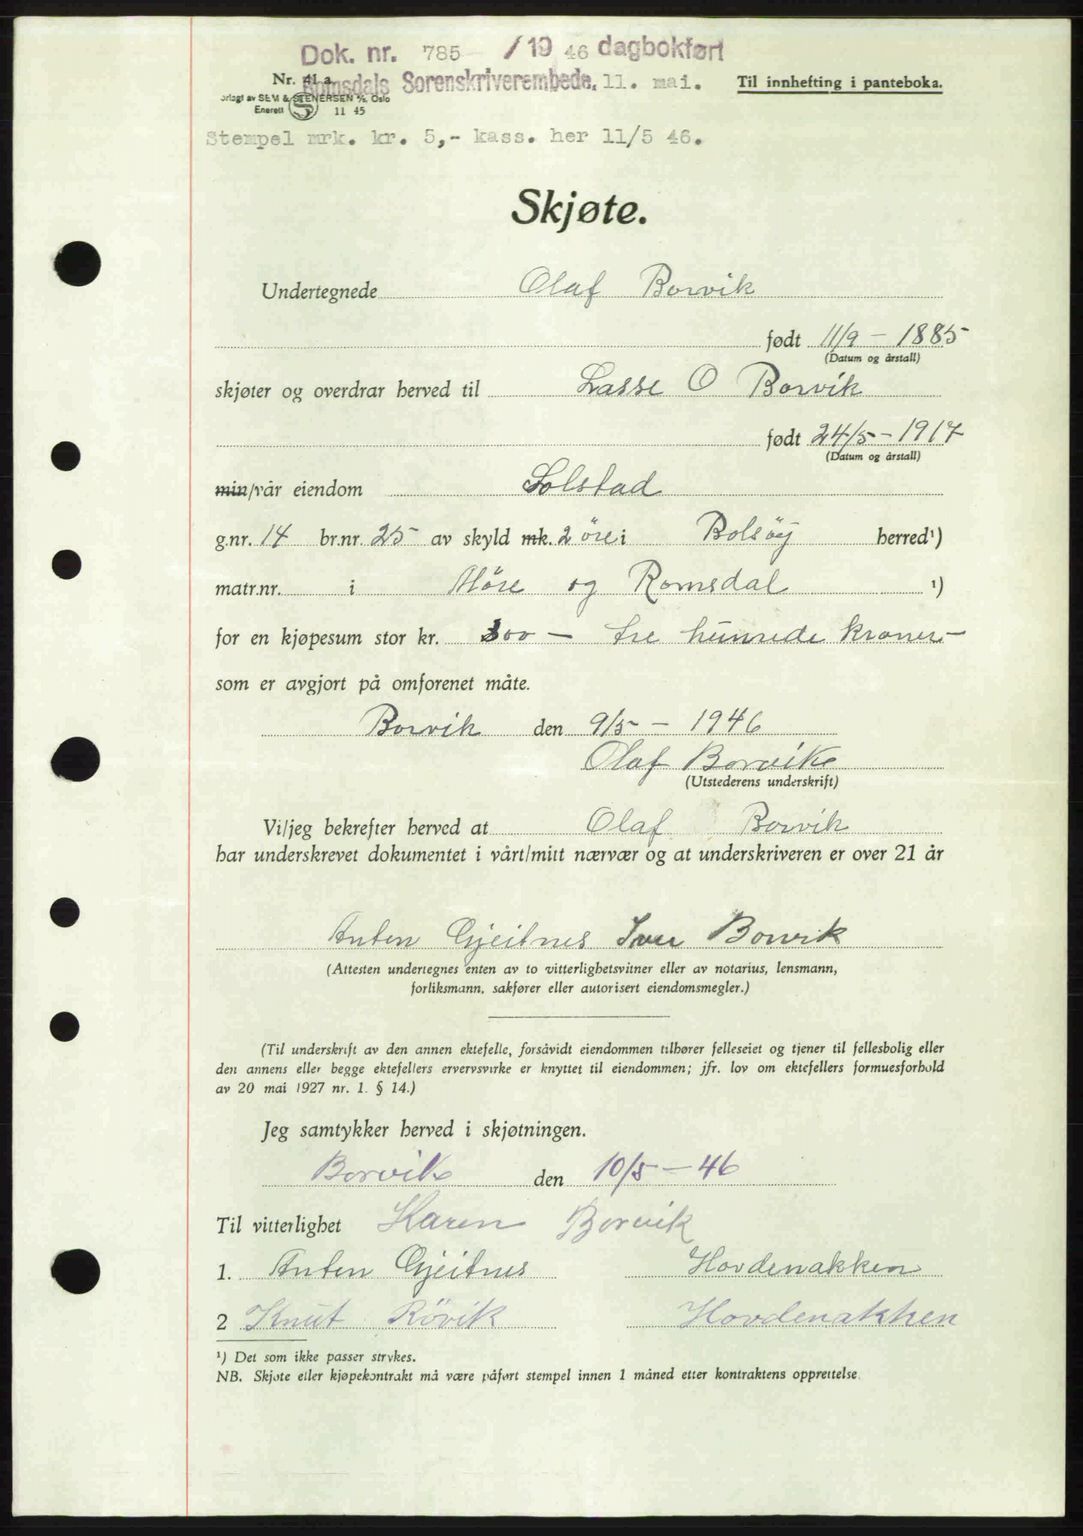 Dok. nr. 785 / 19 46 dagbokført
Nr. 41 a. Romsdals Sorenskriverembede. 11. mai. Til innhefting i panteboka.
SEM & STENERSEN A/S, Oslo
Enerett 11 45
Stempel mrk. kr. 5,- kass. her 11/5 46.
Skjøte.
Undertegnede Olaf Borvik
født 11/9 - 1885
(Datum og årstall)
skjøter og overdrar herved til Lasse O Borvik
født 24/5 - 1917
(Datum og årstall)
min/vår eiendom Solstad
g.nr. 14 br.nr. 25 av skyld mk. 2 øre i Bolsöy herred¹)
matr.nr. i Möre og Romsdal ¹)
for en kjøpesum stor kr. 300 — tre hunrede kroner —
som er avgjort på omforenet måte.
Borvik den 9/5 - 1946
Olaf Borvik
(Utstederens underskrift)
Vi/jeg bekrefter herved at Olaf Borvik
har underskrevet dokumentet i vårt/mitt nærvær og at underskriveren er over 21 år
Anten Gjeitnes Iver Borvik
(Attesten undertegnes enten av to vitterlighetsvitner eller av notarius, lensmann,
forliksmann, sakfører eller autorisert eiendomsmegler.)
(Til underskrift av den annen ektefelle, forsåvidt eiendommen tilhører felleseiet og tjener til fellesbolig eller
den annens eller begge ektefellers ervervsvirke er knyttet til eiendommen; jfr. lov om ektefellers formuesforhold
av 20 mai 1927 nr. 1. § 14.)
Jeg samtykker herved i skjøtningen.
Borvik den 10/5 - 46
Til vitterlighet Karen Borvik
1. Anten Gjeitnes Hovdenakken
2 Knut Rövik Hovdenakken
¹) Det som ikke passer strykes.
NB. Skjøte eller kjøpekontrakt må være påført stempel innen 1 måned etter kontraktens opprettelse.